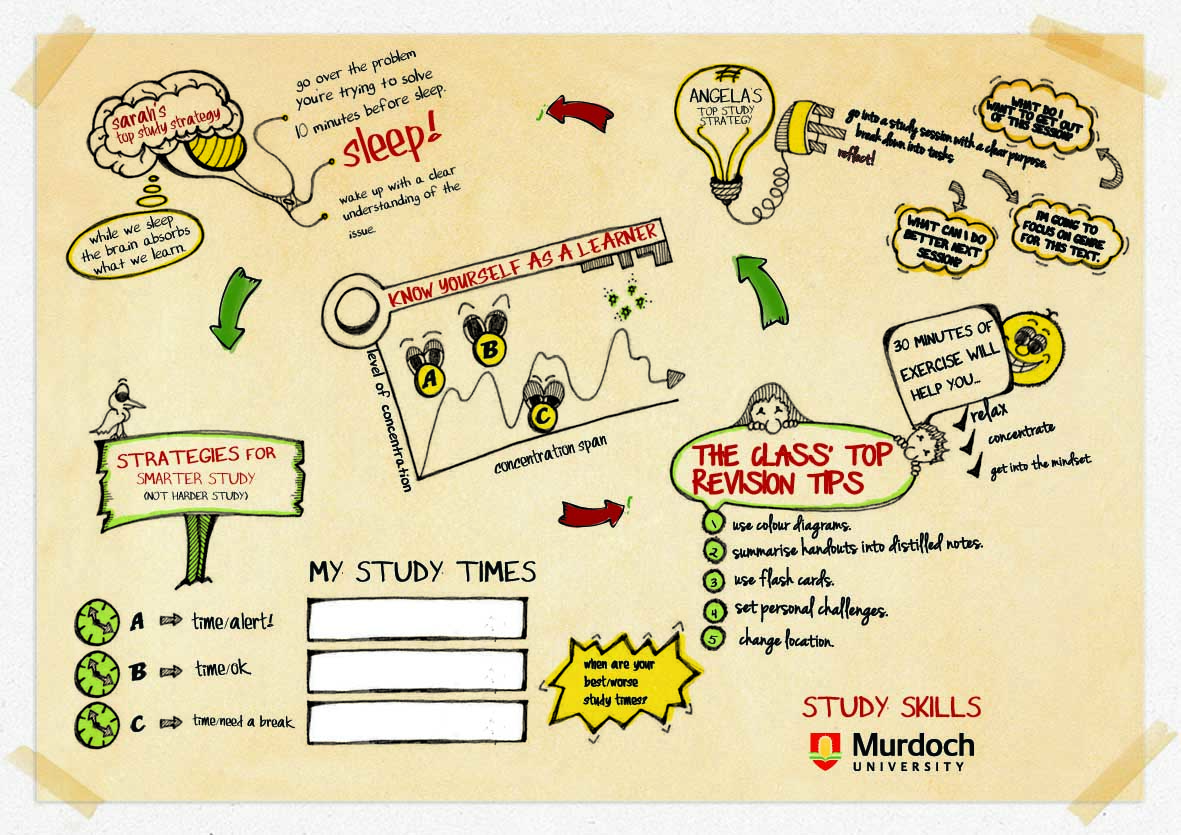 sarah's
top study strategy
go over the problem
you're trying to solve
10 minutes before sleep.
sleep!
wake up with a clear
understanding of the
issue.
while we sleep
the brain absorbs
what we learn.
ANGELA'S
TOP STUDY
STRATEGY
go into a study session with a clear purpose.
break down into tasks
reflect!
WHAT DO I
WANT TO GET OUT
OF THIS SESSION?
I'M GOING TO
FOCUS ON GENRE
FOR THIS TEXT.
WHAT CAN I DO
BETTER NEXT
SESSION?
KNOW YOURSELF AS A LEARNER
level of concentration
A
B
C
concentration span
30 MINUTES OF
EXERCISE WILL
HELP YOU...
relax
concentrate
get into the mindset
STRATEGIES FOR
SMARTER STUDY
(NOT HARDER STUDY)
THE CLASS' TOP
REVISION TIPS
1 use colour diagrams.
2 summarise handouts into distilled notes.
3 use flash cards.
4 set personal challenges.
5 change location.
MY STUDY TIMES
A time/alert!
B time/ok
C time/need a break
when are your
best/worse
study times?
STUDY SKILLS
Murdoch
UNIVERSITY